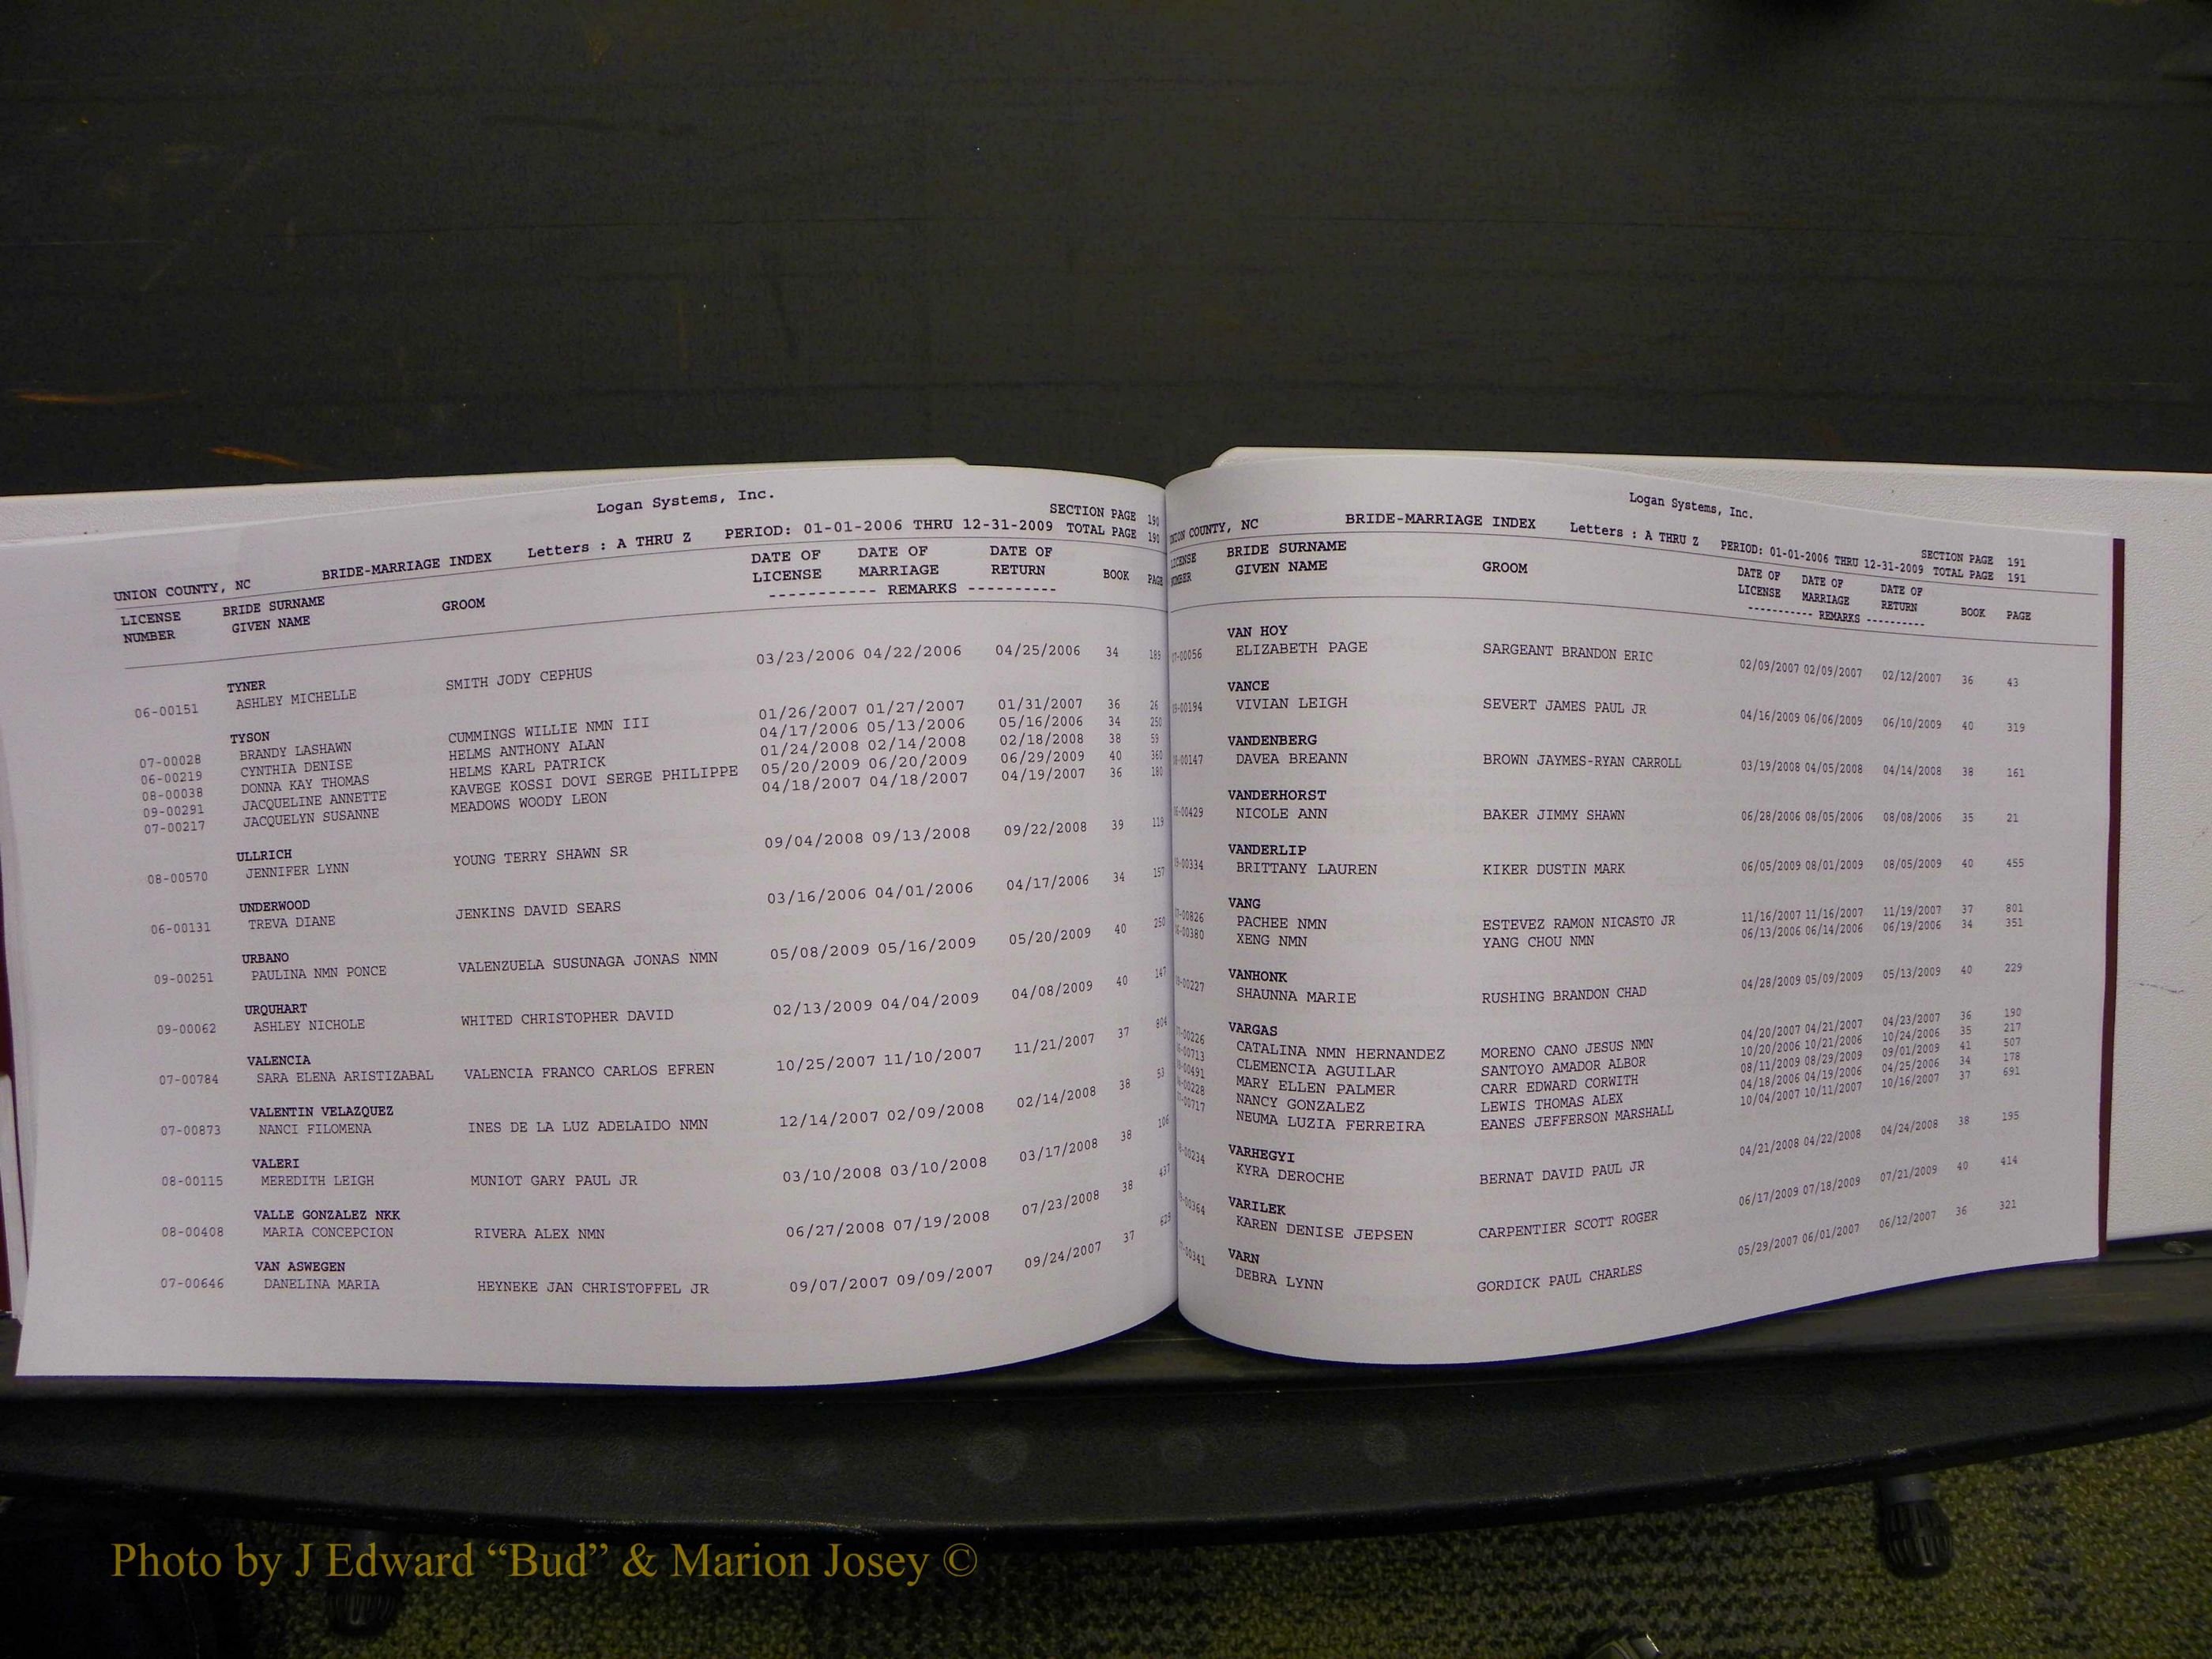 Logan Systems, Inc.
SECTION PAGE 190
UNION COUNTY, NC BRIDE-MARRIAGE INDEX Letters : A THRU Z PERIOD: 01-01-2006 THRU 12-31-2009 TOTAL PAGE 190
LICENSE BRIDE SURNAME GROOM DATE OF DATE OF DATE OF BOOK PAGE
NUMBER GIVEN NAME LICENSE MARRIAGE RETURN
----------- REMARKS ----------
TYNER
06-00151 ASHLEY MICHELLE SMITH JODY CEPHUS 03/23/2006 04/22/2006 04/25/2006 34 189
TYSON
07-00028 BRANDY LASHAWN CUMMINGS WILLIE NMN III 01/26/2007 01/27/2007 01/31/2007 36 26
06-00219 CYNTHIA DENISE HELMS ANTHONY ALAN 04/17/2006 05/13/2006 05/16/2006 34 250
08-00038 DONNA KAY THOMAS HELMS KARL PATRICK 01/24/2008 02/14/2008 02/18/2008 38 59
09-00291 JACQUELINE ANNETTE KAVEGE KOSSI DOVI SERGE PHILIPPE 05/20/2009 06/20/2009 06/29/2009 40 360
07-00217 JACQUELYN SUSANNE MEADOWS WOODY LEON 04/18/2007 04/18/2007 04/19/2007 36 180
ULLRICH
08-00570 JENNIFER LYNN YOUNG TERRY SHAWN SR 09/04/2008 09/13/2008 09/22/2008 39 119
UNDERWOOD
06-00131 TREVA DIANE JENKINS DAVID SEARS 03/16/2006 04/01/2006 04/17/2006 34 157
URBANO
09-00251 PAULINA NMN PONCE VALENZUELA SUSUNAGA JONAS NMN 05/08/2009 05/16/2009 05/20/2009 40 250
URQUHART
09-00062 ASHLEY NICHOLE WHITED CHRISTOPHER DAVID 02/13/2009 04/04/2009 04/08/2009 40 147
VALENCIA
07-00784 SARA ELENA ARISTIZABAL VALENCIA FRANCO CARLOS EFREN 10/25/2007 11/10/2007 11/21/2007 37 804
VALENTIN VELAZQUEZ
07-00873 NANCI FILOMENA INES DE LA LUZ ADELAIDO NMN 12/14/2007 02/09/2008 02/14/2008 38 53
VALERI
08-00115 MEREDITH LEIGH MUNIOT GARY PAUL JR 03/10/2008 03/10/2008 03/17/2008 38 106
VALLE GONZALEZ NKK
08-00408 MARIA CONCEPCION RIVERA ALEX NMN 06/27/2008 07/19/2008 07/23/2008 38 437
VAN ASWEGEN
07-00646 DANELINA MARIA HEYNEKE JAN CHRISTOFFEL JR 09/07/2007 09/09/2007 09/24/2007 37 629
Logan Systems, Inc.
SECTION PAGE 191
UNION COUNTY, NC BRIDE-MARRIAGE INDEX Letters : A THRU Z PERIOD: 01-01-2006 THRU 12-31-2009 TOTAL PAGE 191
LICENSE BRIDE SURNAME GROOM DATE OF DATE OF DATE OF BOOK PAGE
NUMBER GIVEN NAME LICENSE MARRIAGE RETURN
----------- REMARKS ----------
VAN HOY
07-00056 ELIZABETH PAGE SARGEANT BRANDON ERIC 02/09/2007 02/09/2007 02/12/2007 36 43
VANCE
-00194 VIVIAN LEIGH SEVERT JAMES PAUL JR 04/16/2009 06/06/2009 06/10/2009 40 319
VANDENBERG
-00147 DAVEA BREANN BROWN JAYMES-RYAN CARROLL 03/19/2008 04/05/2008 04/14/2008 38 161
VANDERHORST
-00429 NICOLE ANN BAKER JIMMY SHAWN 06/28/2006 08/05/2006 08/08/2006 35 21
VANDERLIP
-00334 BRITTANY LAUREN KIKER DUSTIN MARK 06/05/2009 08/01/2009 08/05/2009 40 455
VANG
-00826 PACHEE NMN ESTEVEZ RAMON NICASTO JR 11/16/2007 11/16/2007 11/19/2007 37 801
-00380 XENG NMN YANG CHOU NMN 06/13/2006 06/14/2006 06/19/2006 34 351
VANHONK
-00227 SHAUNNA MARIE RUSHING BRANDON CHAD 04/28/2009 05/09/2009 05/13/2009 40 229
VARGAS
-00226 CATALINA NMN HERNANDEZ MORENO CANO JESUS NMN 04/20/2007 04/21/2007 04/23/2007 36 190
-00713 CLEMENCIA AGUILAR SANTOYO AMADOR ALBOR 10/20/2006 10/21/2006 10/24/2006 35 217
-00491 MARY ELLEN PALMER CARR EDWARD CORWITH 08/11/2009 08/29/2009 09/01/2009 41 507
-00228 NANCY GONZALEZ LEWIS THOMAS ALEX 04/18/2006 04/19/2006 04/25/2006 34 178
-00717 NEUMA LUZIA FERREIRA EANES JEFFERSON MARSHALL 10/04/2007 10/11/2007 10/16/2007 37 691
VARHEGYI
-00234 KYRA DEROCHE BERNAT DAVID PAUL JR 04/21/2008 04/22/2008 04/24/2008 38 195
VARILEK
-00364 KAREN DENISE JEPSEN CARPENTIER SCOTT ROGER 06/17/2009 07/18/2009 07/21/2009 40 414
VARN
-00341 DEBRA LYNN GORDICK PAUL CHARLES 05/29/2007 06/01/2007 06/12/2007 36 321
Photo by J Edward “Bud” & Marion Josey ©